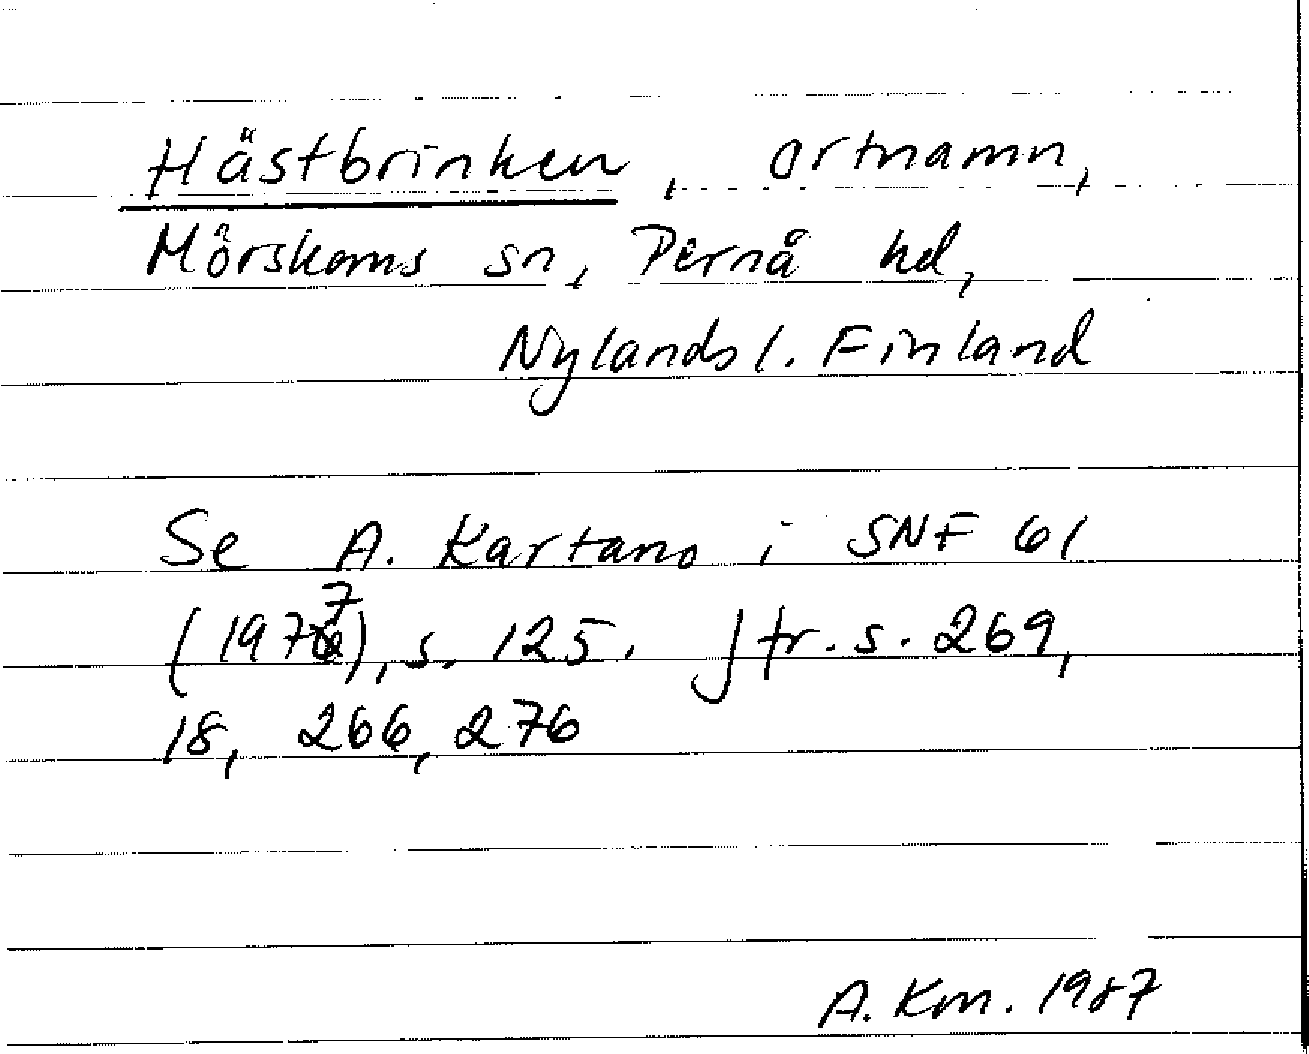 Hästbrinken, ortnamn,
Mörskoms sn, Pernå hd,
Nylands l. Finland
Se A. Kartano i SNF 61
(1977), s. 125. Jfr. s. 269,
18, 266, 276
A. Km. 1987